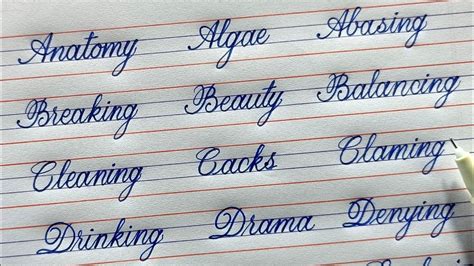 Anatomy Algae Abasing
Breaking Beauty Balancing
Cleaning Cacks Claming
Drinking Drama Denying